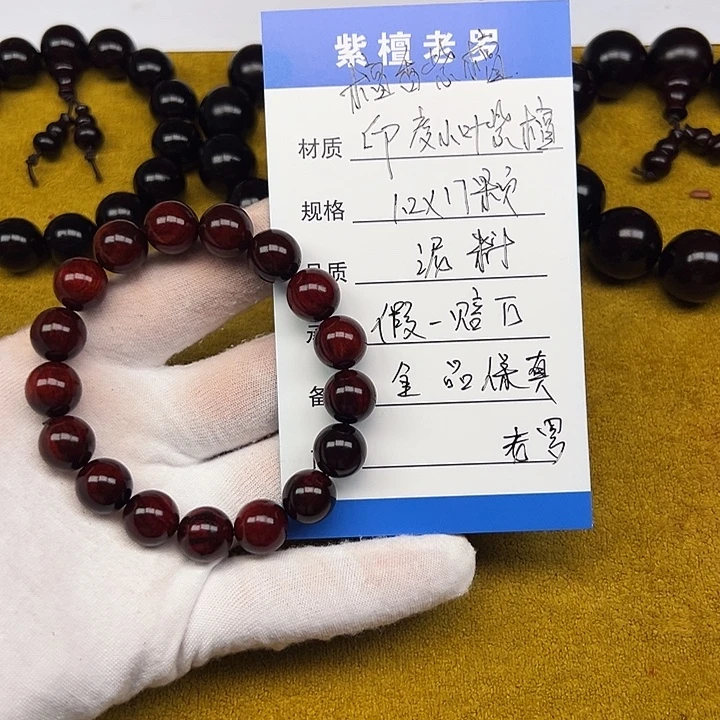 紫檀老罗
檀香紫檀
材质 印度小叶紫檀
规格 12X17颗
品质 泥料
假一赔万
备 全品保真
老罗